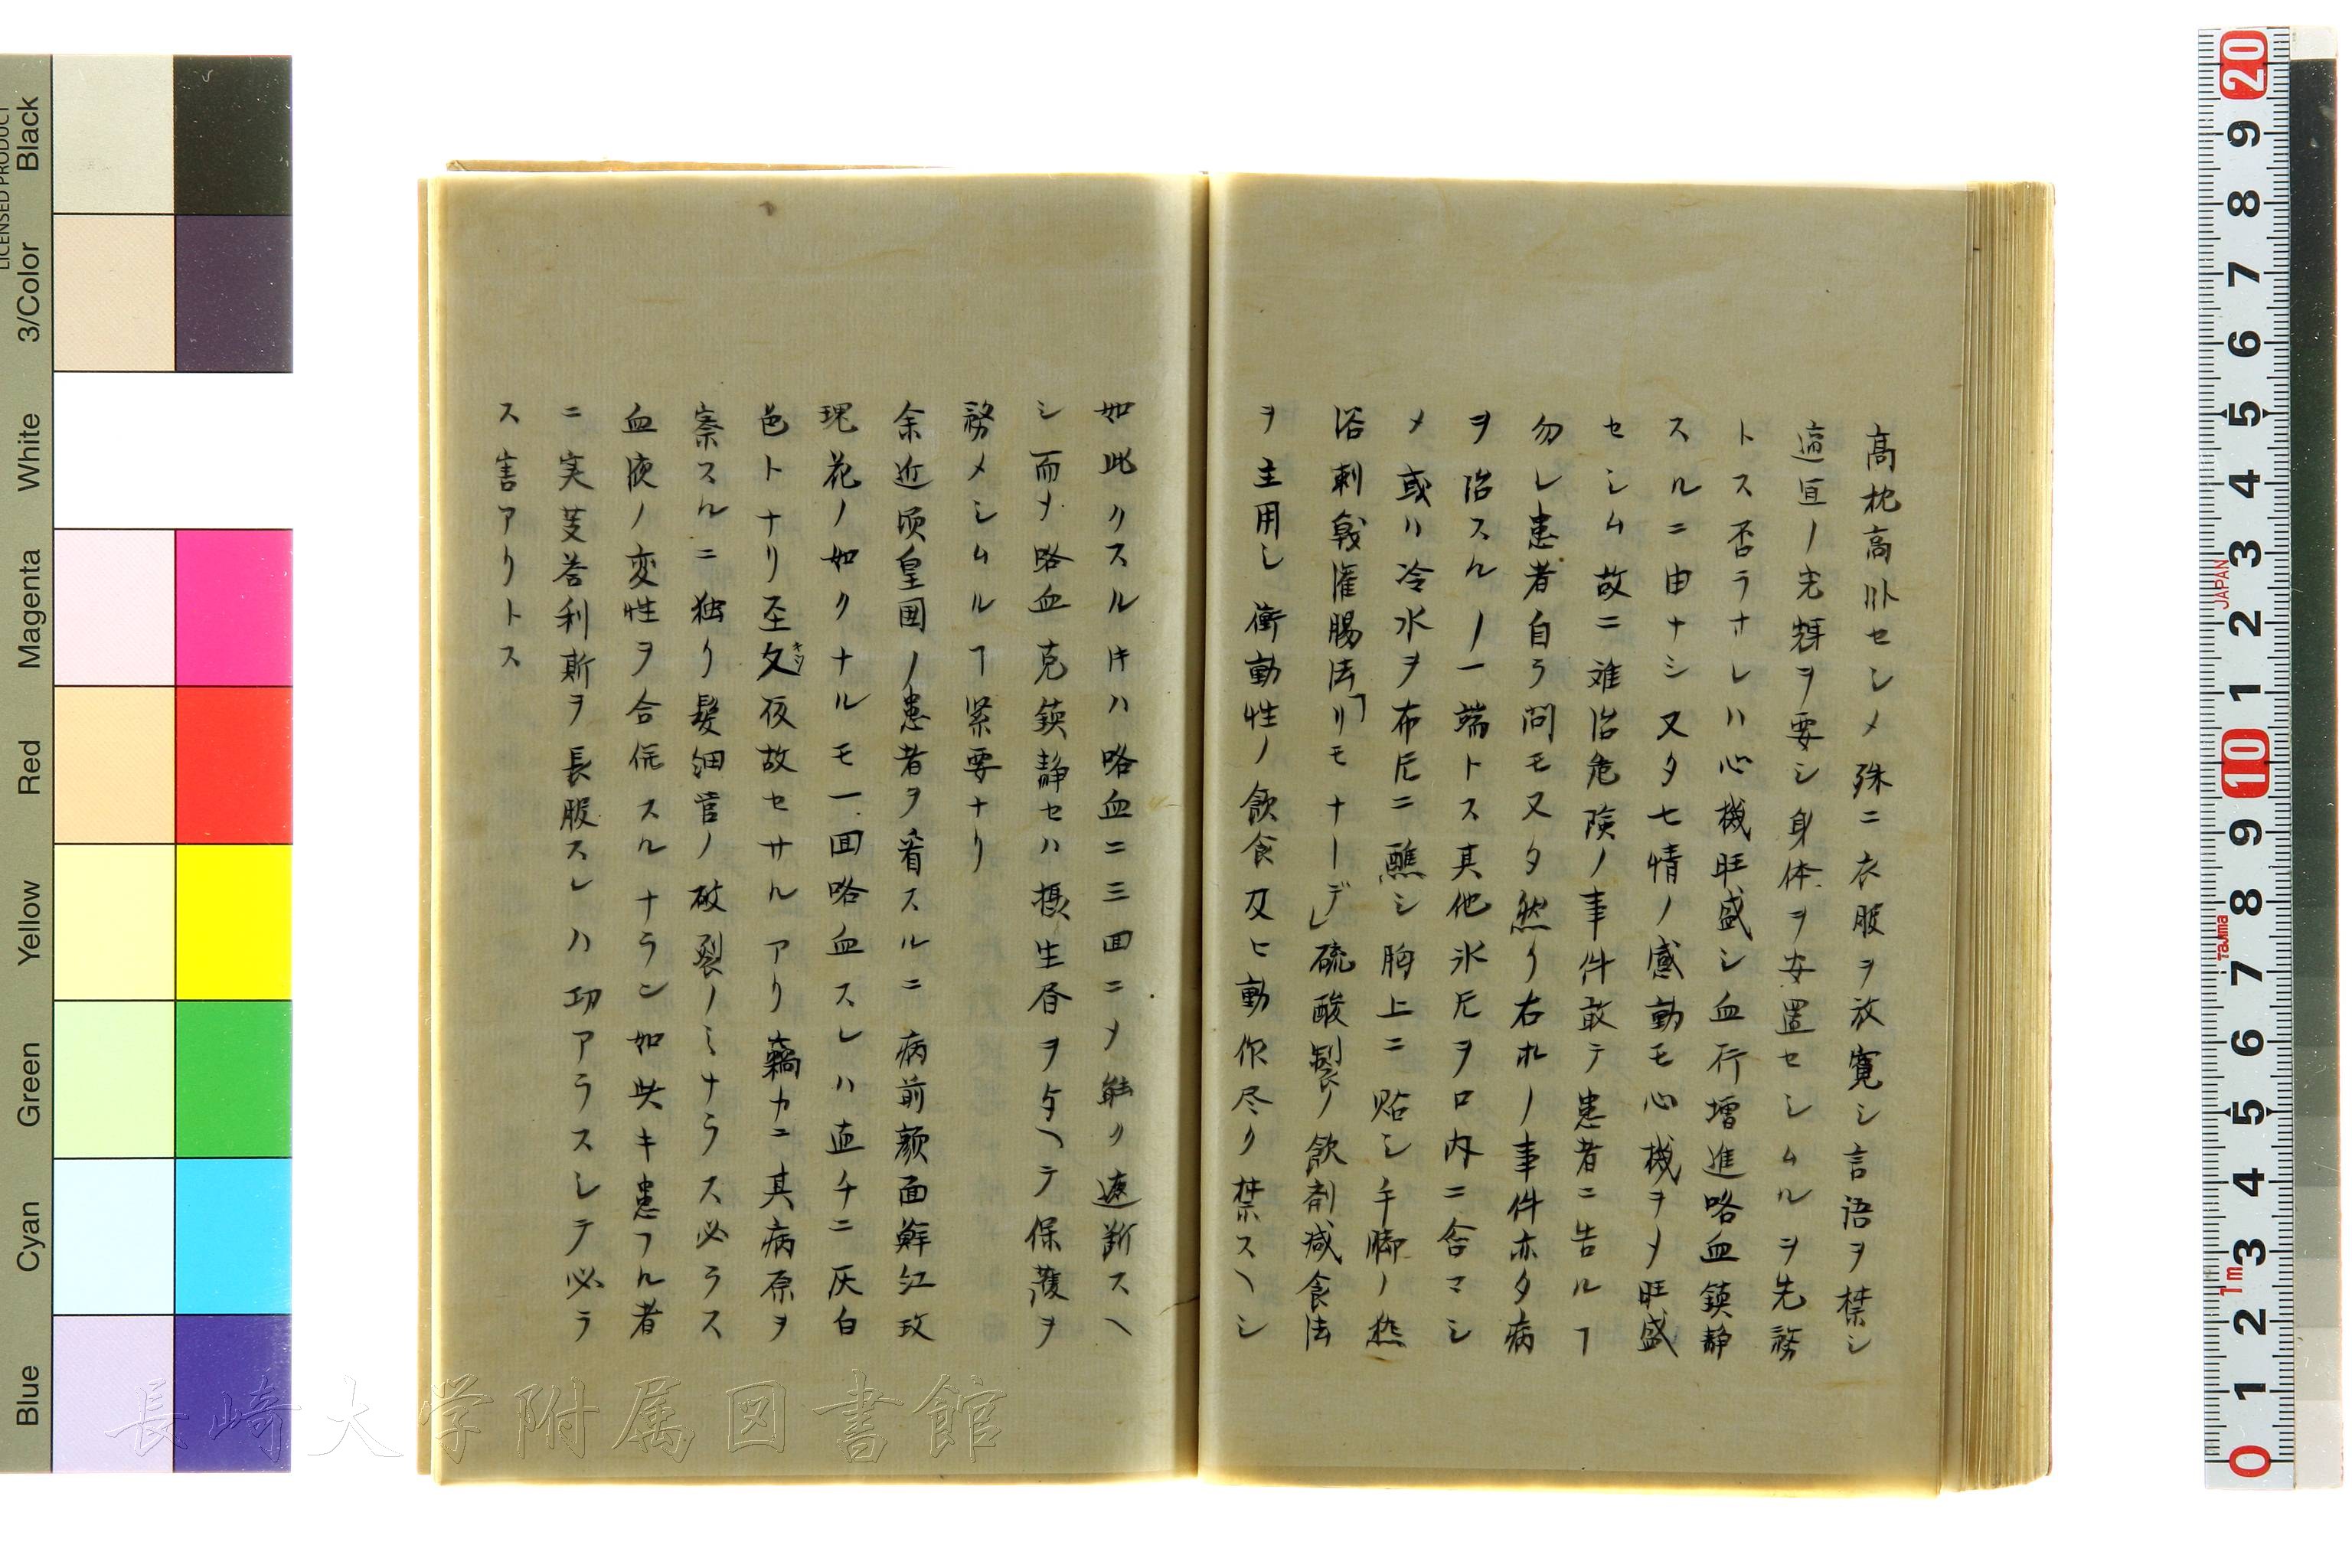 高枕高臥セシメ殊ニ衣服ヲ放寛シ言語ヲ禁シ
適宜ノ光輝ヲ要シ身体ヲ安置セシムルヲ先務
トス否ラサレハ心機旺盛シ血行増進咯血鎮静
スルニ由ナシ又タ七情ノ感動モ心機ヲメ旺盛
セシム故ニ難治危険ノ事件敢テ患者ニ告ルヿ
勿レ患者自ラ問モ又タ然リ右ホノ事件亦タ病
ヲ治スルノ一端トス其他氷片ヲ口内ニ含マシ
メ或ハ冷水ヲ布片ニ蘸シ胸上ニ貼シ手脚ノ熱
浴刺戟灌腸法「リモナーデ」硫酸製ノ飲剤減食法
ヲ主用シ衝動性ノ飲食及ヒ動作尽ク禁スヘシ
如此クスルキハ咯血ニ三回ニメ能ク速断スヘ
シ而メ咯血克鎮静セハ摂生昏ヲ与ヘテ保護ヲ
務メシムルヿ緊要ナリ
余近頃皇国ノ患者ヲ看スルニ病前顔面鮮紅玫
瑰花ノ如クナルモ一回咯血スレハ直チニ灰白
色トナリ至夂キシ夜故セサルアリ竊カニ其病原ヲ
察スルニ独リ髮細管ノ破裂ノミナラス必ラス
血液ノ変性ヲ合併スルナラン如此キ患フル者
ニ実芰荅利斯ヲ長服スレハ功アラスシテ必ラ
ス害アリトス
Black
3/Color
White
Magenta
Red
Yellow
Green
Cyan
Blue
LICENSED PRODUCT
長崎大学附属図書館
20
9
8
7
6
5
4
3
2
1
10
9
8
7
6
5
4
3
2
1
0
JAPAN
Tajima
1m